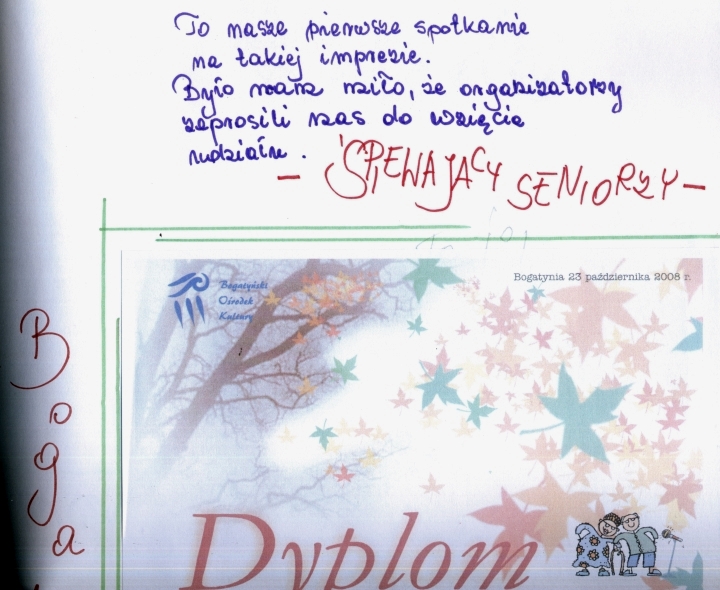 To nasze pierwsze spotkanie
na takiej imprezie.
Było nam miło, że organizatorzy
zaprosili nas do wzięcia
udziału.
- ŚPIEWAJĄCY SENIORZY -
Bogatyński
Ośrodek
Kultury
Bogatynia 23 października 2008 r.
B
o
g
a
Dyplom